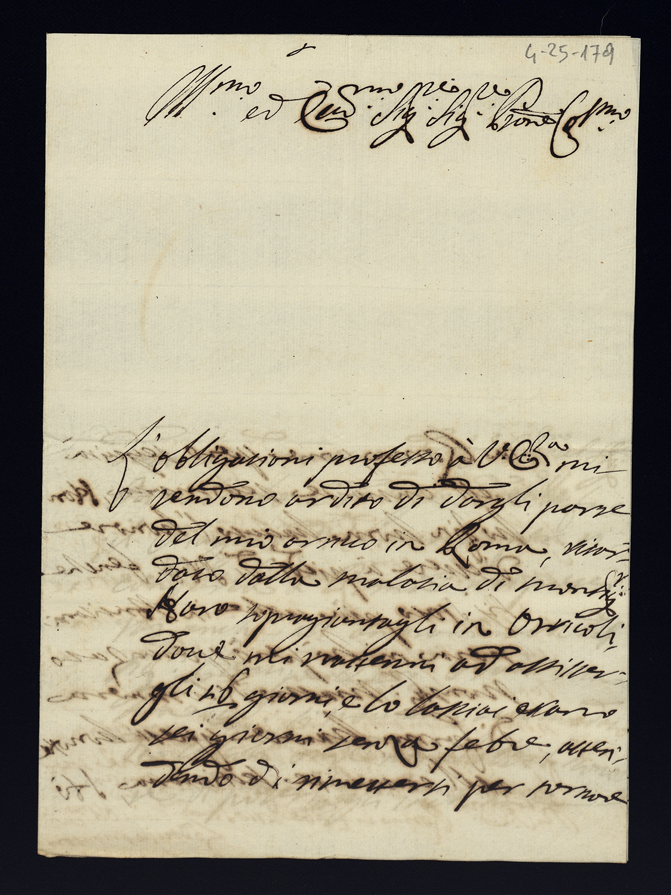 4-25-179
Ill.mo ed Ecc.mo Sig.re Sig.re P.rone Col.mo
L'obligazioni professo à V. Ecc.a mi
rendono ardito di dargli parte
del mio arrivo in Roma, ritar-
dato dalla malatia di Mons.r
sopragiontagli in Otricoli,
dove mi trattenni ad assister-
gli 26 giorni, e lo lasciai erano
sei giorni senza febre, atten-
dendo di rimettersi per tornare